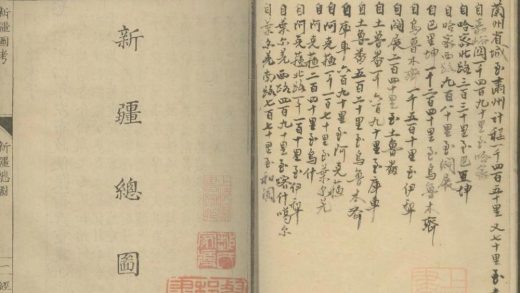 蘭州省城至肅州計程一千四百五十里又七十里至
自嘉峪關一千四百九十里至哈密
自哈密北路三百三十里至巴里坤
自哈密西路九百八十里至闢展
自巴里坤一千三百四十里至烏魯木齊
自烏魯木齊一千五百十里至伊犂
自闢展二百四十里至土魯番
自土魯番一千六百九十里至庫車
自土魯番五百二十里至烏魯木齊
自庫車六百九十里至阿克蘇
自阿克蘇一千一百七十里至葉爾羌
自阿克蘇二百四十里至烏什
自阿克蘇北路一千一百十里至伊犂
自葉爾羌西路四百九十里至喀什噶爾
自葉爾羌南路七百七十里至和闐
新疆總圖
新疆圖考
新疆總圖
一